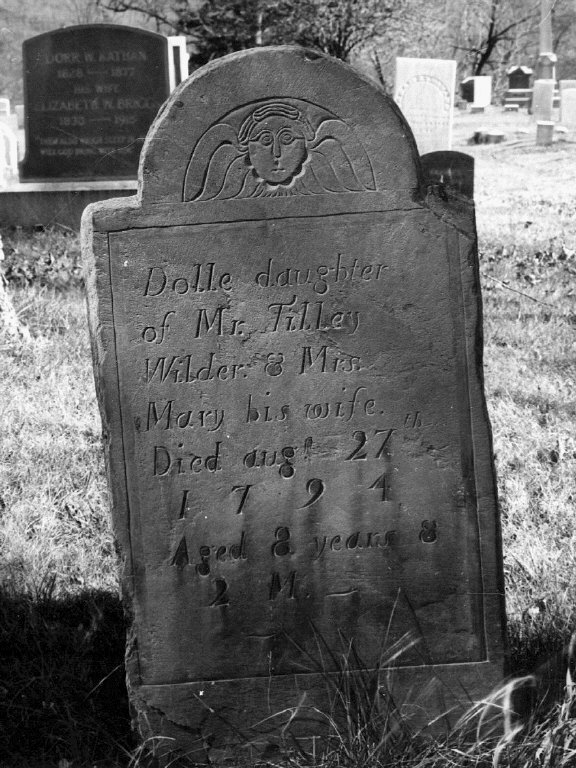 DORR W. NATHAN
1828 — 1877
HIS WIFE
ELIZABETH N. BRIGGS
1830 — 1915
Dolle daughter
of Mr. Tilley
Wilder. & Mrs.
Mary his wife.
Died augst. 27th
1 7 9 4
Aged 8 years &
2 M. —